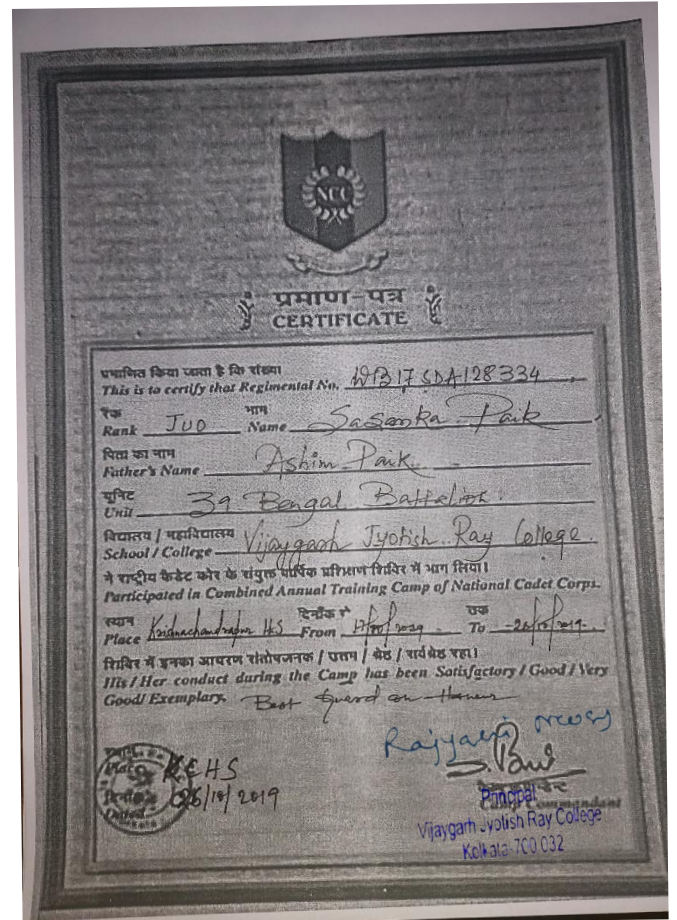 NCC
प्रमाण-पत्र
CERTIFICATE
प्रमाणित किया जाता है कि संख्या
This is to certify that Regimental No. WB17SDA128334
रैंक नाम
Rank JUO Name Sasanka Park
पिता का नाम
Father's Name Ashim Park
यूनिट
Unit 39 Bengal Battalion
विद्यालय / महाविद्यालय
School / College Vijaygarh Jyotish Ray College
ने राष्ट्रीय कैडेट कोर के संयुक्त वार्षिक प्रशिक्षण शिविर में भाग लिया।
Participated in Combined Annual Training Camp of National Cadet Corps.
स्थान दिनाँक से तक
Place Krishnachandrapur HS From To
शिविर में इनका आचरण संतोषजनक / उत्तम / श्रेष्ठ / सर्वश्रेष्ठ रहा।
His / Her conduct during the Camp has been Satisfactory / Good / Very
Good/ Exemplary. Best Guard on Honour
Place KCHS
Dated 26/10/2019
Principal
Camp Commandant
Vijaygarh Jyotish Ray College
Kolkata-700 032